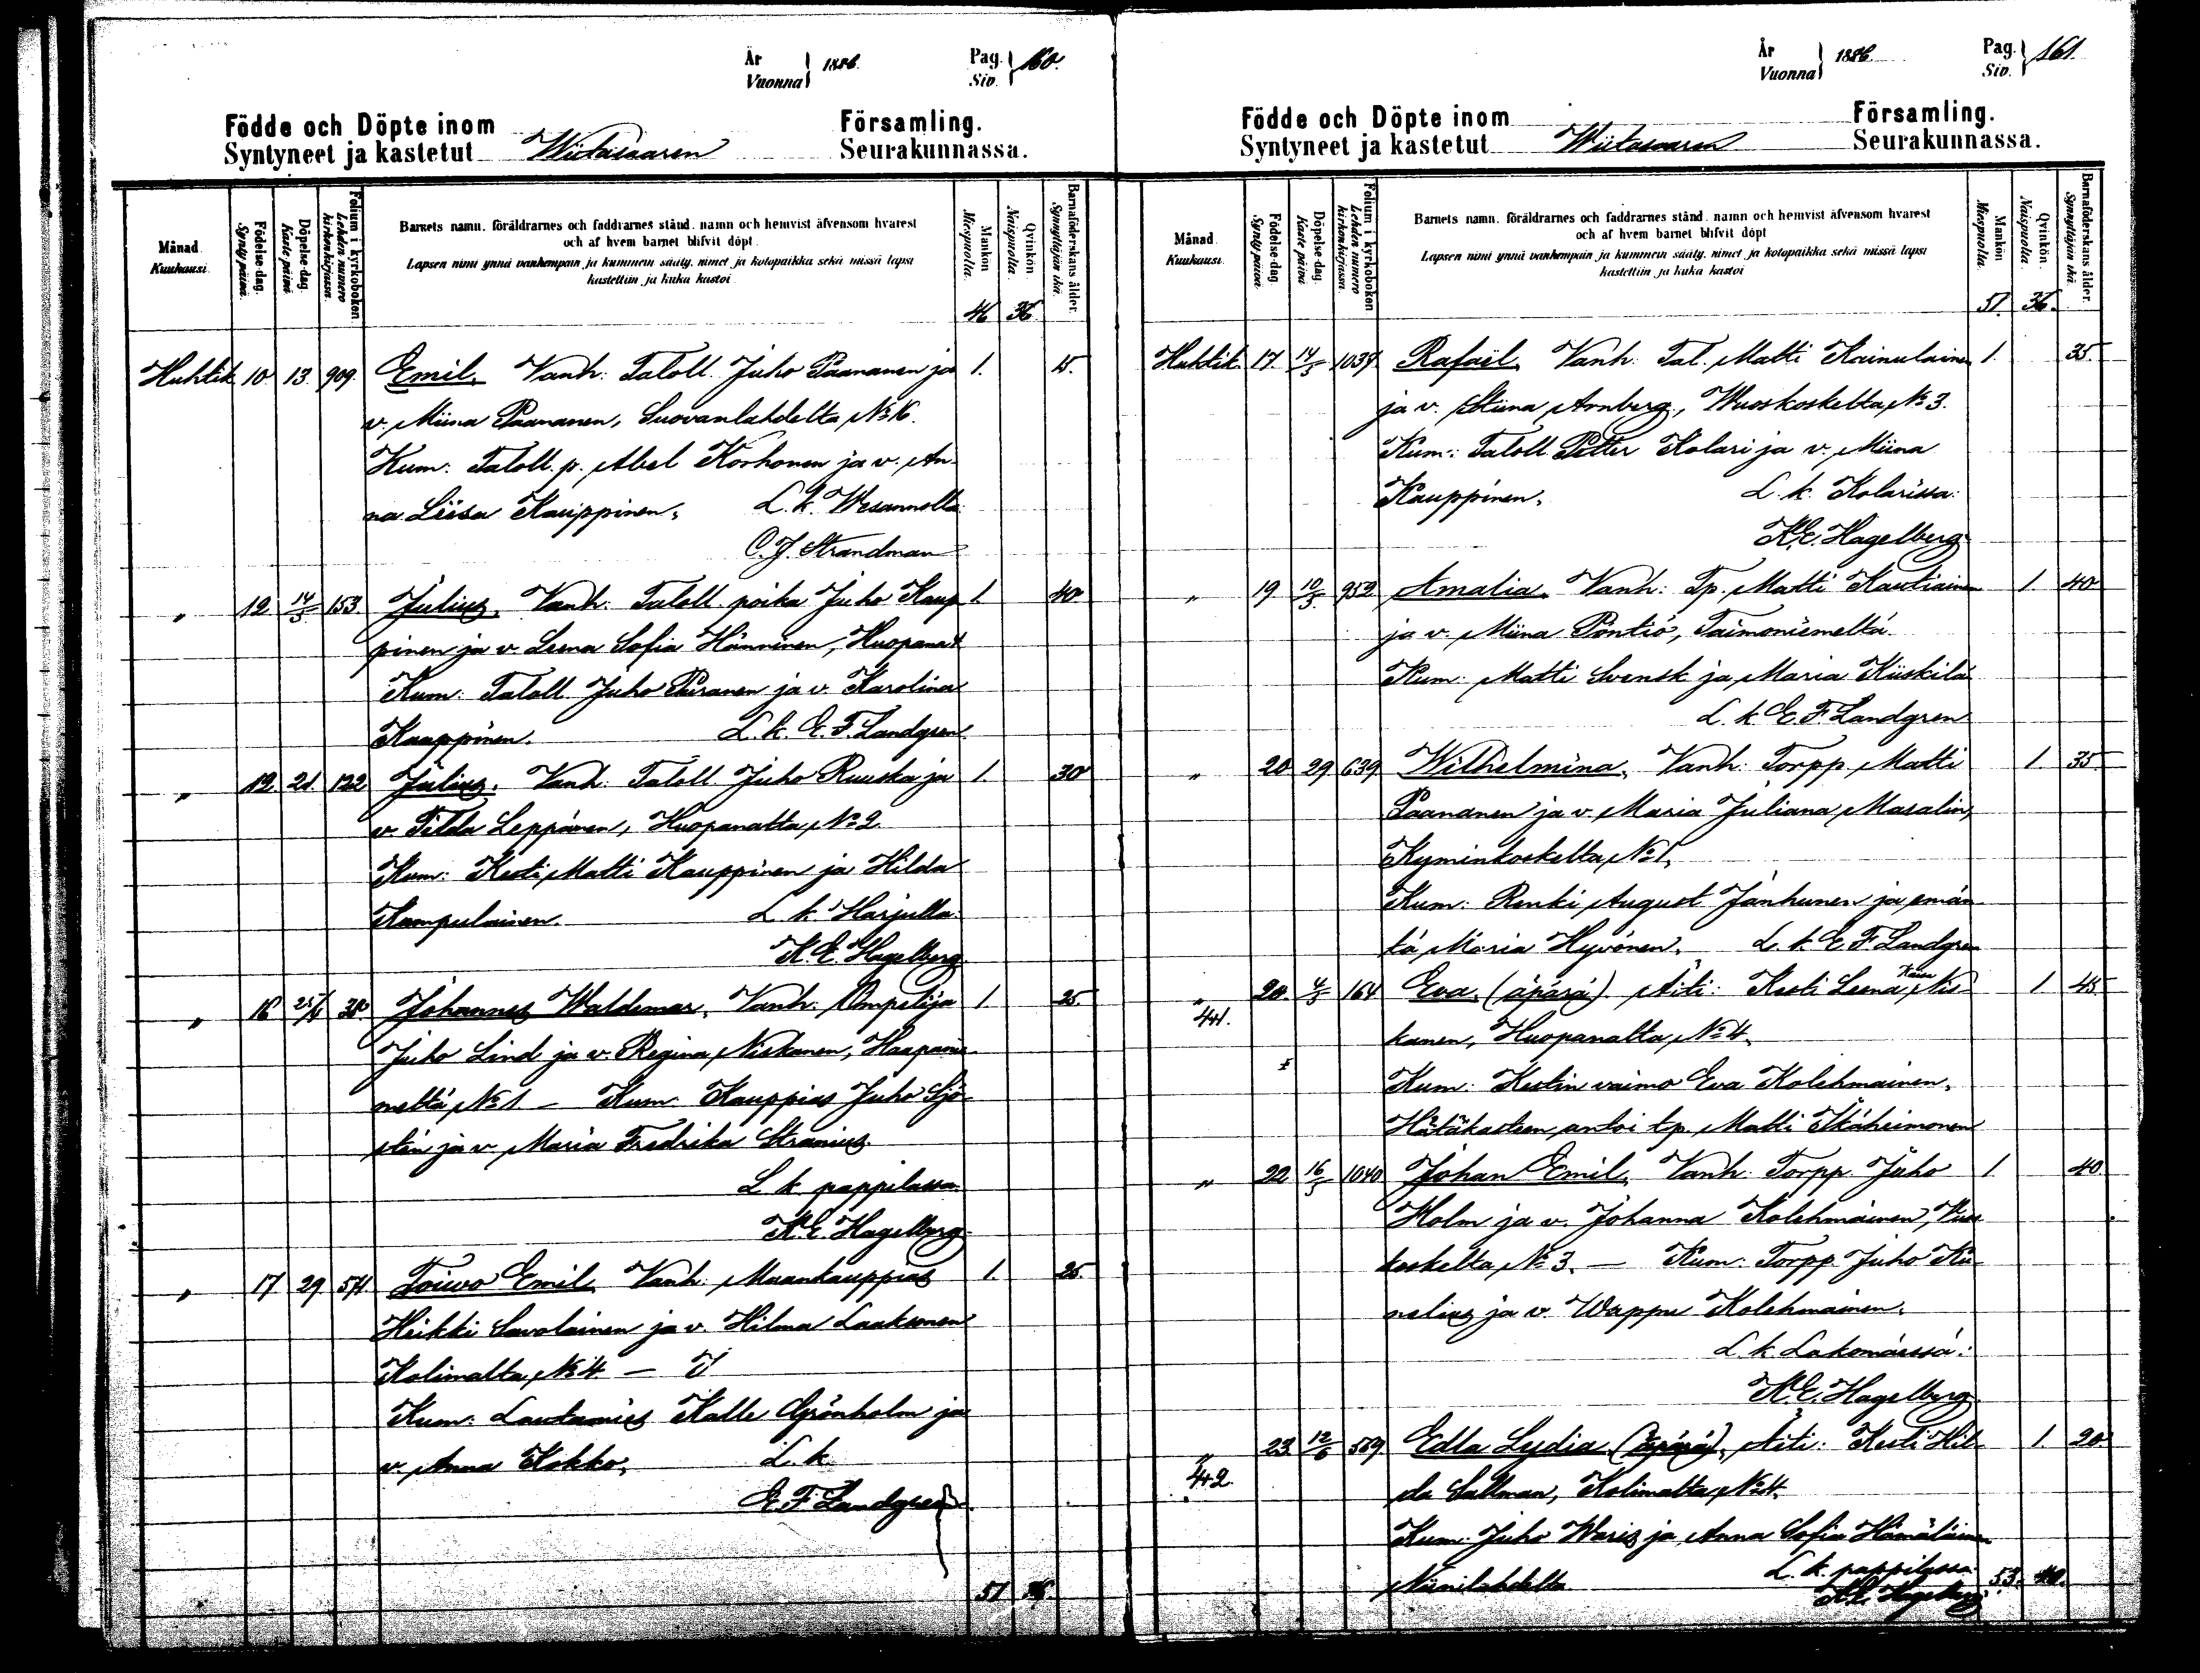 År
Vuonna
1886.
Pag.
Siv.
160.
Födde och Döpte inom
Syntyneet ja kastetut
Wiitasaaren
Församling.
Seurakunnassa.
Månad.
Kuukausi.
Födelse-dag.
Synty päivä.
Döpelse-dag.
Kaste päivä
Folium i kyrkoboken
Lehden numero
kirkonkirjassa.
Barnets namn, föräldrarnes och faddrarnes stånd, namn och hemvist äfvensom hvarest
och af hvem barnet blifvit döpt.
Lapsen nimi ynnä vanhempain ja kummein sääty, nimet ja kotopaikka sekä missä lapsi
kastettiin ja kuka kastoi
Mankön
Miespuolta.
Qvinkön
Naispuolta.
Barnaföderskans ålder.
Synnyttäjän ikä.
46 36.
Huhtik 10 13. 909. Emil. Vanh: Taloll. Juho Paananen ja 1. 15.
v. Miina Paananen, Suovanlahdelta, No 16.
Kum: Taloll. p. Abel Korhonen ja v. An-
na Liisa Kauppinen. L. k. Wesannolla.
C. J. Strandman
" 12 14/5 153. Julius. Vanh. Taloll. poika Juho Kaup- 1. 40
pinen ja v Leena Sofia Hänninen, Huopanat
Kum: Taloll Juho Puranen ja v. Karolina
Kauppinen. L. k. E. F. Landgren.
" 12. 21. 122 Julius. Vanh: Taloll Juho Ruuska ja 1. 30
v Tilda Leppänen, Huopanalta No 2
Kum: Kesti Matti Kauppinen ja Hilda
Kumpulainen. L. k Harjulla.
K. E. Hagelberg.
" 16 25/4 38. Johannes Waldemar. Vanh: Ompelija 1 25.
Juho Lind ja v. Regina Niskanen, Haapanie-
meltä No 1. — Kum Kauppias Juho Sjö-
stén ja v. Maria Fredrika Stranius.
L k pappilassa.
K. E. Hagelberg
" 17 29 571. Toiwo Emil. Vanh. Maankauppias 1. 25.
Heikki Savolainen ja v. Hilma Laaksonen
Kolimalta, No 4 —
Kum: Lautamies Kalle Grönholm ja
v. Anna Kokko. L. k.
E. F. Landgren.
51 36.
År
Vuonna
1886.
Pag.
Siv.
161.
Födde och Döpte inom
Syntyneet ja kastetut
Wiitasaaren
Församling.
Seurakunnassa.
Månad.
Kuukausi.
Födelse-dag.
Synty päivä
Döpelse-dag.
Kaste päivä
Folium i kyrkoboken
Lehden numero
kirkonkirjassa.
Barnets namn, föräldrarnes och faddrarnes stånd, namn och hemvist äfvensom hvarest
och af hvem barnet blifvit döpt
Lapsen nimi ynnä vanhempain ja kummein sääty, nimet ja kotopaikka sekä missä lapsi
kastettiin ja kuka kastoi
Mankön
Miespuolta.
Qvinkön.
Naispuolta.
Barnaföderskans ålder.
Synnyttäjän ikä.
51. 36.
Huhtik. 17. 14/5 1037. Rafaël. Vanh: Tal. Matti Kainulainen 1. 35.
ja v. Stiina Arnberg, Wuoskoskelta, No 3.
Kum: Taloll Petter Kolari ja v. Miina
Kauppinen. L. k. Kolarissa:
K. E. Hagelberg.
" 19 10/5 952 Amalia. Vanh: Tp. Matti Kautiainen 1. 40
ja v. Miina Pöntiö, Taimoniemeltä.
Kum: Matti Svensk ja Maria Kiiskilä
L. k. E. F. Landgren
" 20 29 639 Wilhelmina. Vanh: Torpp. Matti 1. 35.
Paananen ja v. Maria Juliana Masalin,
Kyminkoskelta, No 1.
Kum: Renki August Jänhunen ja emän-
tä Maria Hyvönen. L. k E. F. Landgren
" 20. 4/5 164 Eva. (äpärä) Äiti: Kesti Leena Kaisa Nis- 1 45.
441.
kanen, Huopanalta, No 4.
Kum: Kestin vaimo Eva Kolehmainen.
Hätäkasteen antoi tp. Matti Ikäheimonen
" 22 16/5 1040 Johan Emil. Vanh. Torpp. Juho 1. 40.
Holm ja v. Johanna Kolehmainen, Vuos-
koskelta No 3. — Kum. Torpp. Juho Ku-
nelius ja v. Wappu Kolehmainen.
L. k. Lakomäessä:
K. E. Hagelberg.
" 23. 12/6 569. Edla Lydia (äpärä). Äiti: Kesti Hil- 1. 20.
442.
da Sallman, Kolimalta, No 4.
Kum: Juho Waris ja Anna Sofia Hämäläinen
Niinilahdelta L. k. pappilassa
K. E. Hagelberg
53. 40.